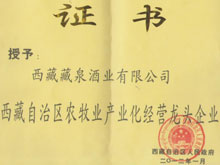 证书
授予：
西藏藏泉酒业有限公司
西藏自治区农牧业产业化经营龙头企业
西藏自治区人民政府
二〇一三年一月